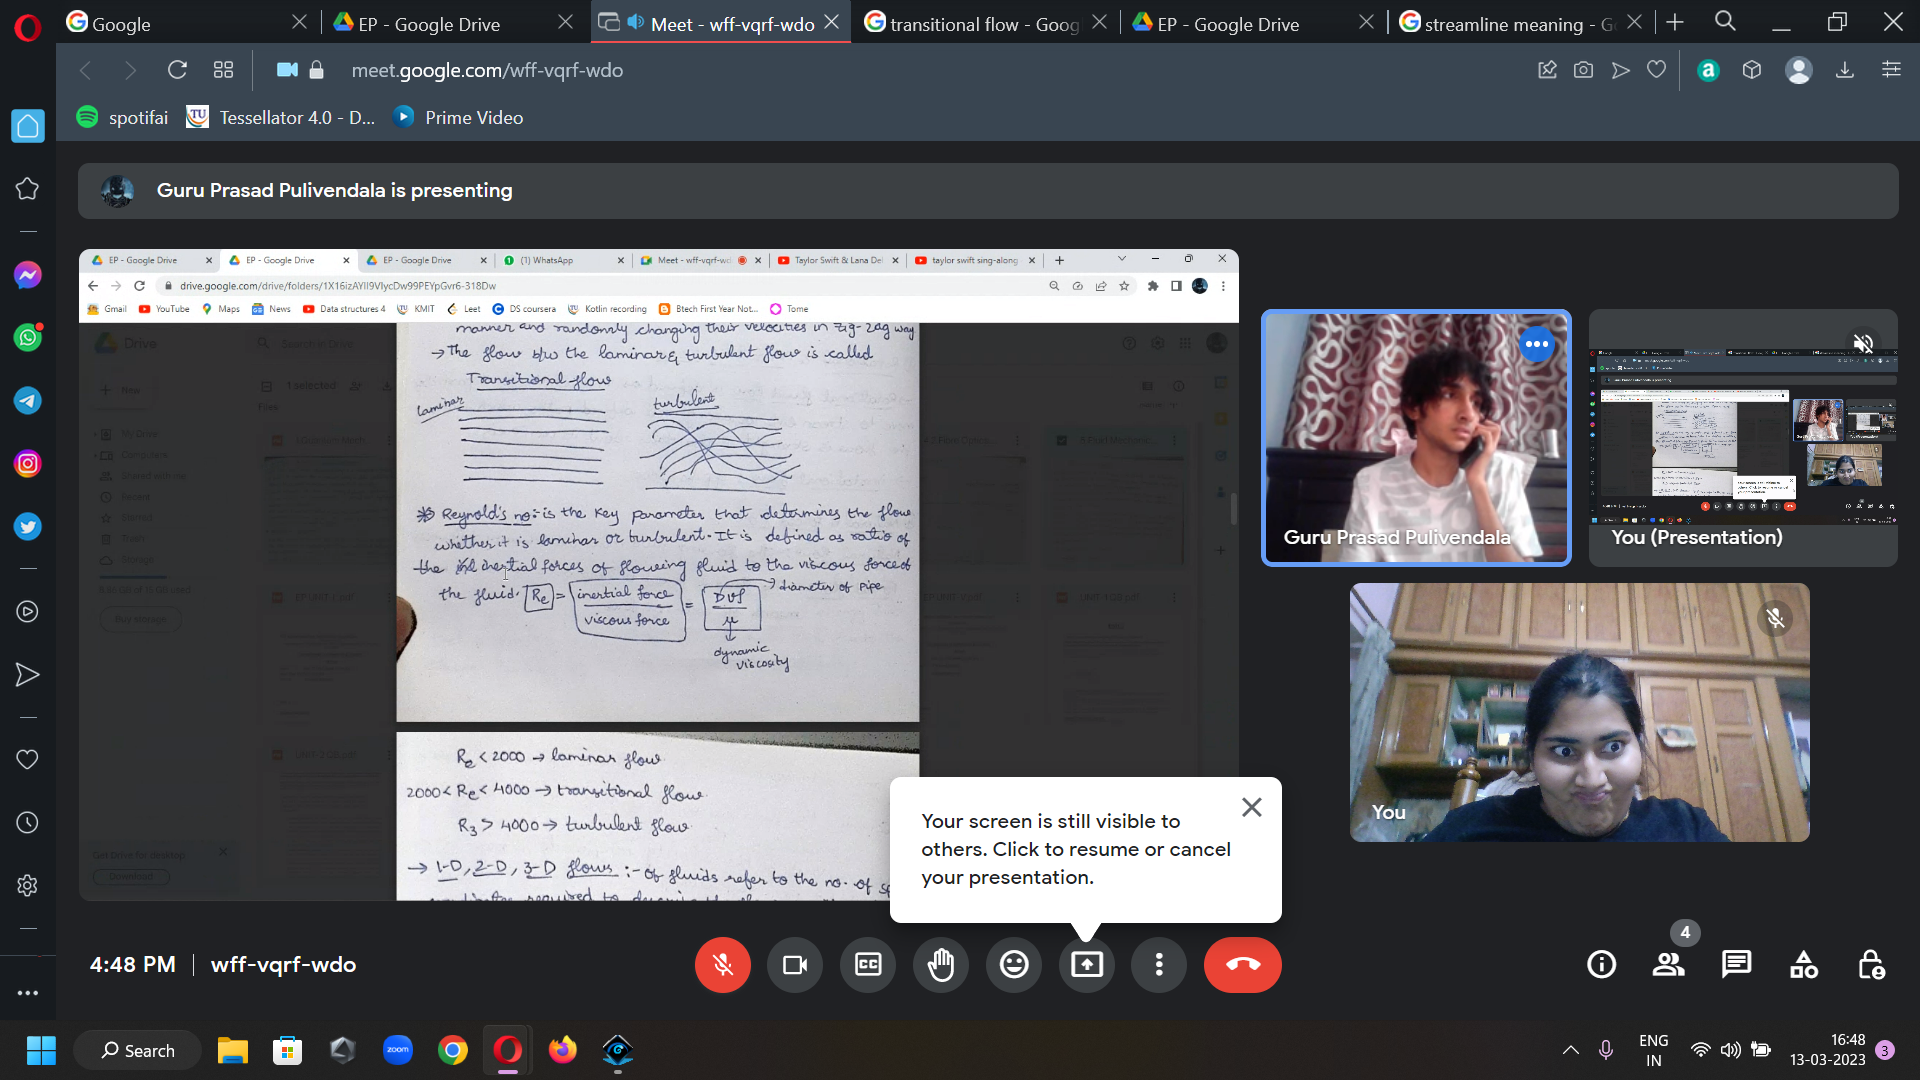 Google
EP - Google Drive
Meet - wff-vqrf-wdo
transitional flow - Goog
EP - Google Drive
streamline meaning - G
meet.google.com/wff-vqrf-wdo
spotifai
Tessellator 4.0 - D...
Prime Video
Guru Prasad Pulivendala is presenting
EP - Google Drive
EP - Google Drive
EP - Google Drive
(1) WhatsApp
Meet - wff-vqrf-wd
Taylor Swift & Lana Del
taylor swift sing-along
drive.google.com/drive/folders/1X16izAYIl9VIycDw99PEYpGvr6-318Dw
Gmail
YouTube
Maps
News
Data structures 4
KMIT
Leet
DS coursera
Kotlin recording
Btech First Year Not...
Tome
Drive
Search in Drive
New
1 selected
My Drive
Computers
Shared with me
Recent
Starred
Trash
Storage
Buy storage
Get Drive for desktop
Download
manner and randomly changing their velocities in Zig-Zag way
→ The flow b/w the laminar & turbulent flow is called
Transitional flow
laminar
turbulent
Reynold's no:- is the key parameter that determines the flow
whether it is laminar or turbulent. It is defined as ratio of
the inertial forces of flowing fluid to the viscous force of
the fluid. Re = inertial force / viscous force = Dvf / μ → diameter of pipe
dynamic
viscosity
Re < 2000 → laminar flow
2000 < Re < 4000 → transitional flow
R3 > 4000 → turbulent flow
→ 1-D, 2-D, 3-D flows :- of fluids refer to the no. of
required to
Guru Prasad Pulivendala
You (Presentation)
You
Your screen is still visible to
others. Click to resume or cancel
your presentation.
4:48 PM | wff-vqrf-wdo
CC
4
Search
zoom
ENG
IN
16:48
13-03-2023
3